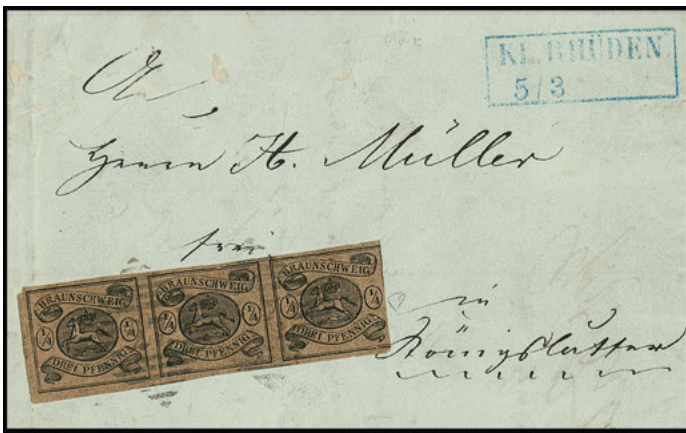 KL. RHÜDEN
5/3
An
Herrn H. Müller
frei
BRAUNSCHWEIG
1/4 1/4
DREI PFENNIG
BRAUNSCHWEIG
1/4 1/4
DREI PFENNIG
BRAUNSCHWEIG
1/4 1/4
DREI PFENNIG
in
Königslutter